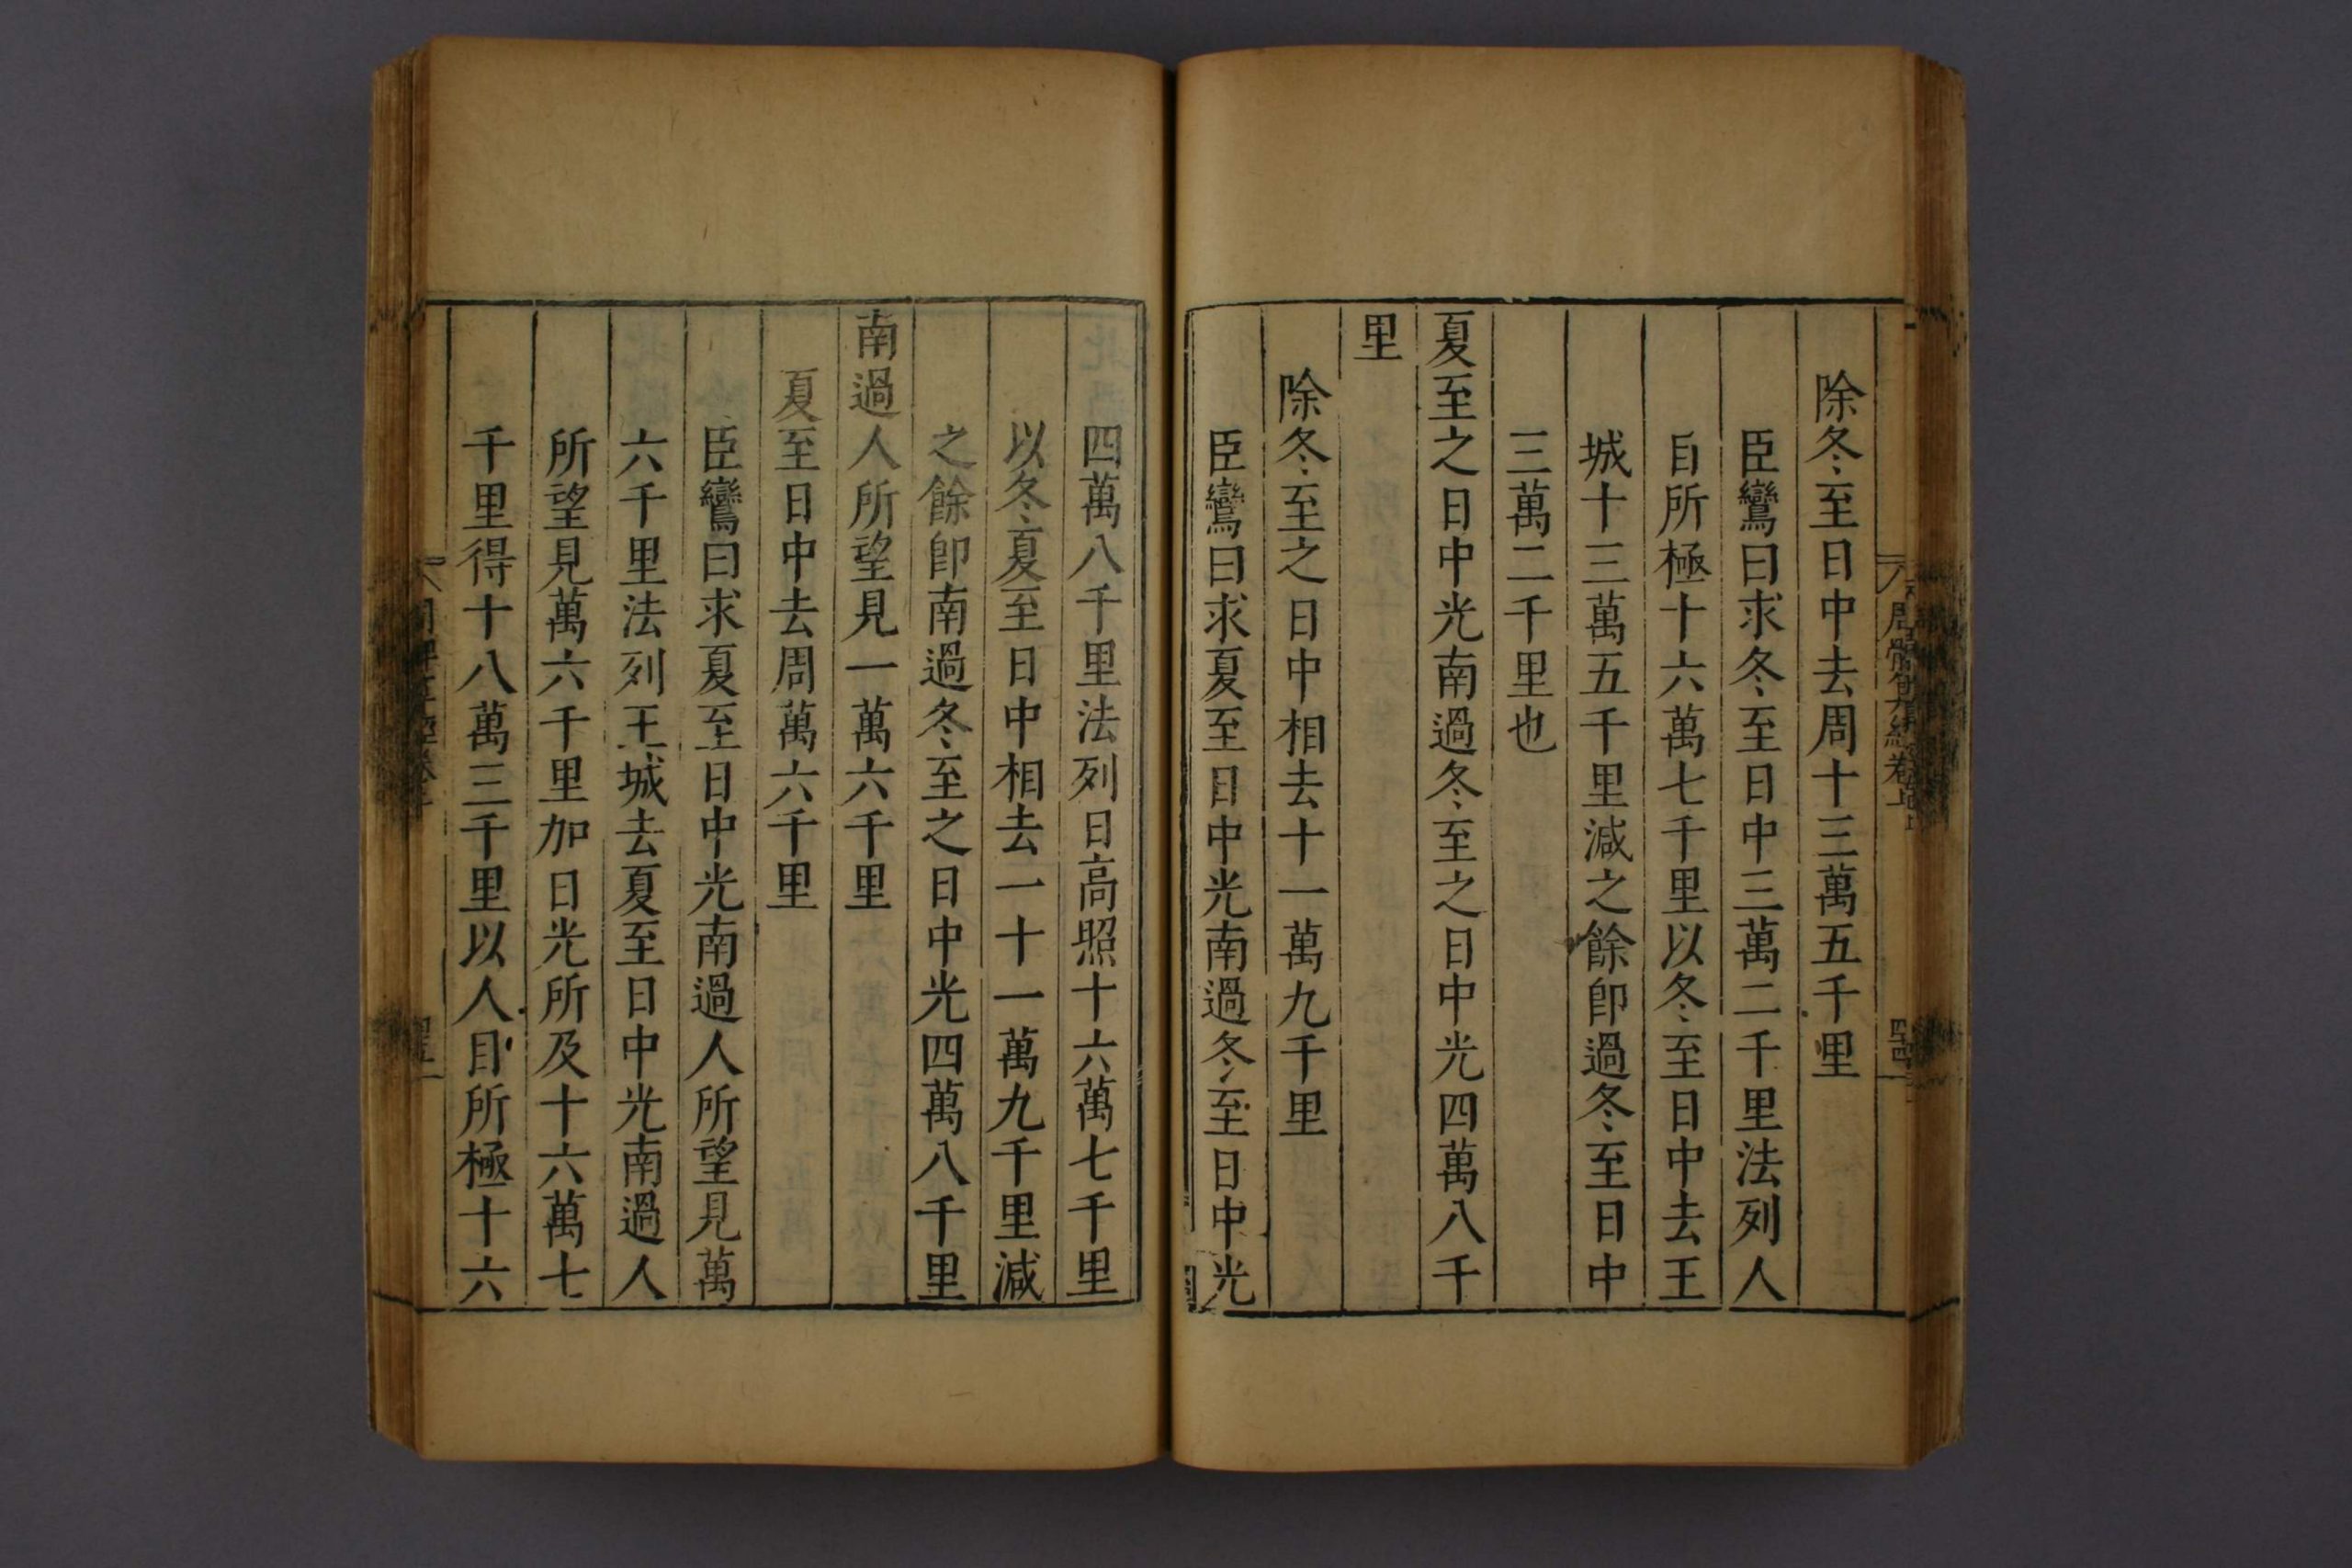 周髀算經卷上
除冬至日中去周十三萬五千里
臣鸞曰求冬至日中三萬二千里法列人
目所極十六萬七千里以冬至日中去王
城十三萬五千里減之餘卽過冬至日中
三萬二千里也
夏至之日中光南過冬至之日中光四萬八千
里
除冬至之日中相去十一萬九千里
臣鸞曰求夏至日中光南過冬至日中光
四萬八千里法列日高照十六萬七千里
以冬夏至日中相去一十一萬九千里減
之餘卽南過冬至之日中光四萬八千里
南過人所望見一萬六千里
夏至日中去周萬六千里
臣鸞曰求夏至日中光南過人所望見萬
六千里法列王城去夏至日中光南過人
所望見萬六千里加日光所及十六萬七
千里得十八萬三千里以人目所極十六